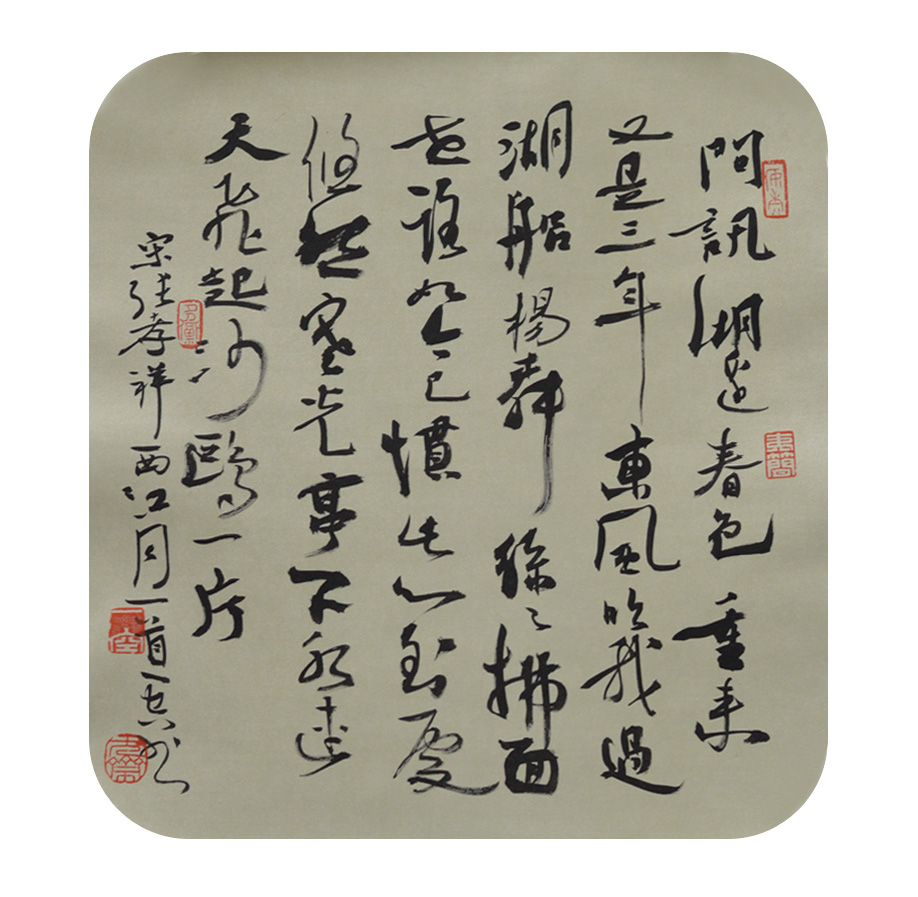 問訊湖邊春色重来
又是三年東風吹我過
湖船楊柳絲〻拂面
世路如今已慣此心到處
悠然寒光亭下水連
天飛起沙鷗一片
宋張孝祥西江月一首